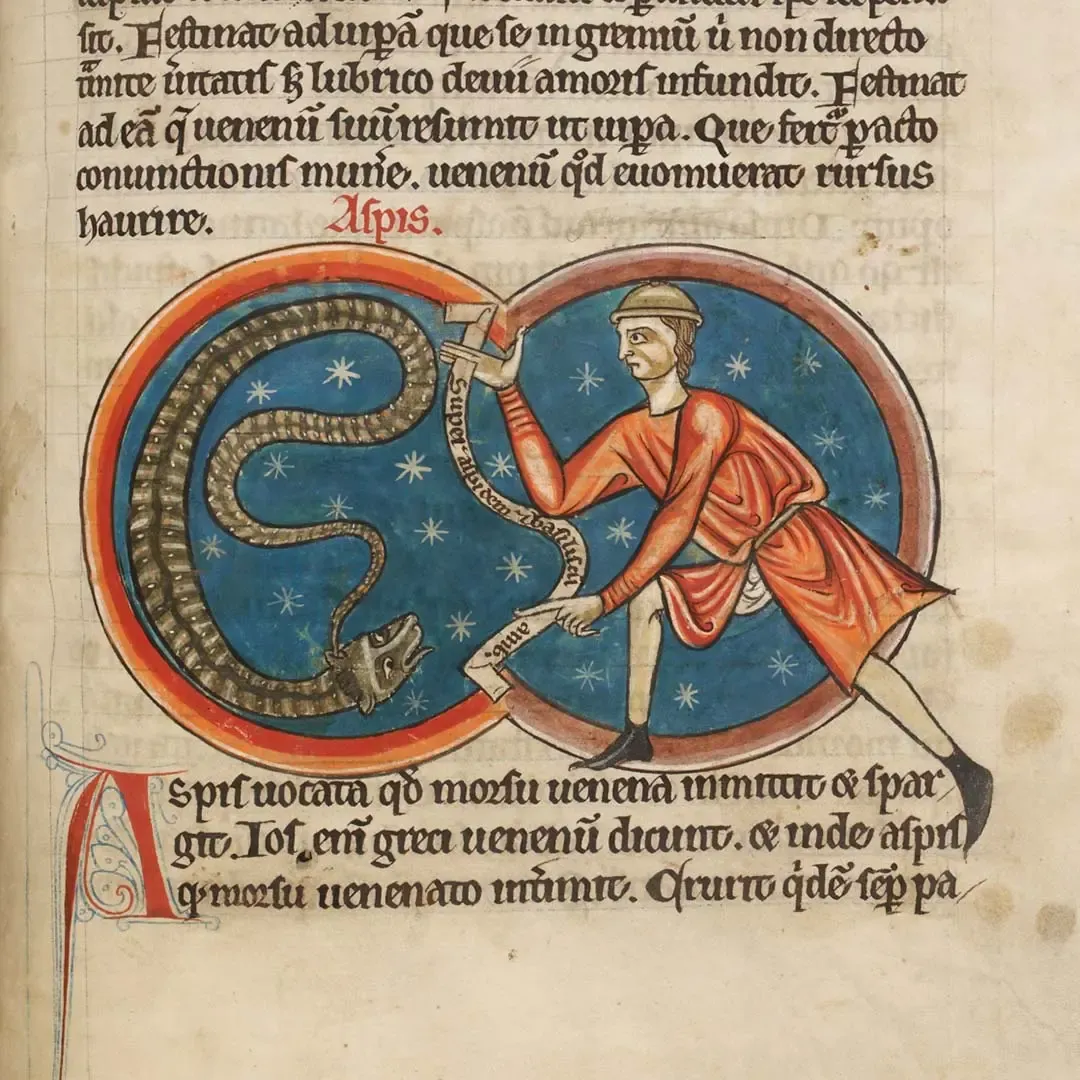 sit. Festinat ad uip̄ā que se in gremiū ů non directo
tͣmite ůitatis s̄ lubrico deuii amoris infundit. Festinat
ad eā q̄ uenenū suū resumit ut uip̄a. Que fert᷑ p̱acto
coniunctionis mune᷑. uenenū qd̊ euomuerat rursus
haurire.
Aspis.
Super aspidem ⁊ basiliscū
amb.
Aspis uocata qd̊ morsu uenena inmittit & spar
git. Ios. eni̅ greci uenenū dicunt. & inde aspis
ꝙ morsu uenenato int̾imit. Crurit q̇dē sēp pa